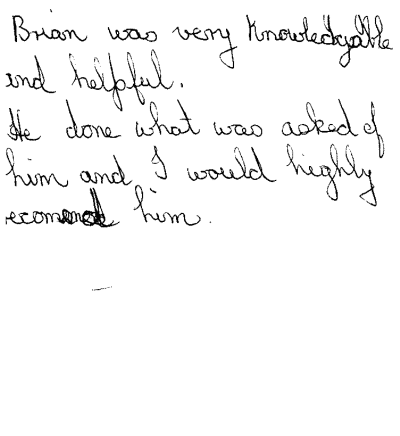 Brian was very knowledgable
and helpful.
He done what was asked of
him and I would highly
recommend him.